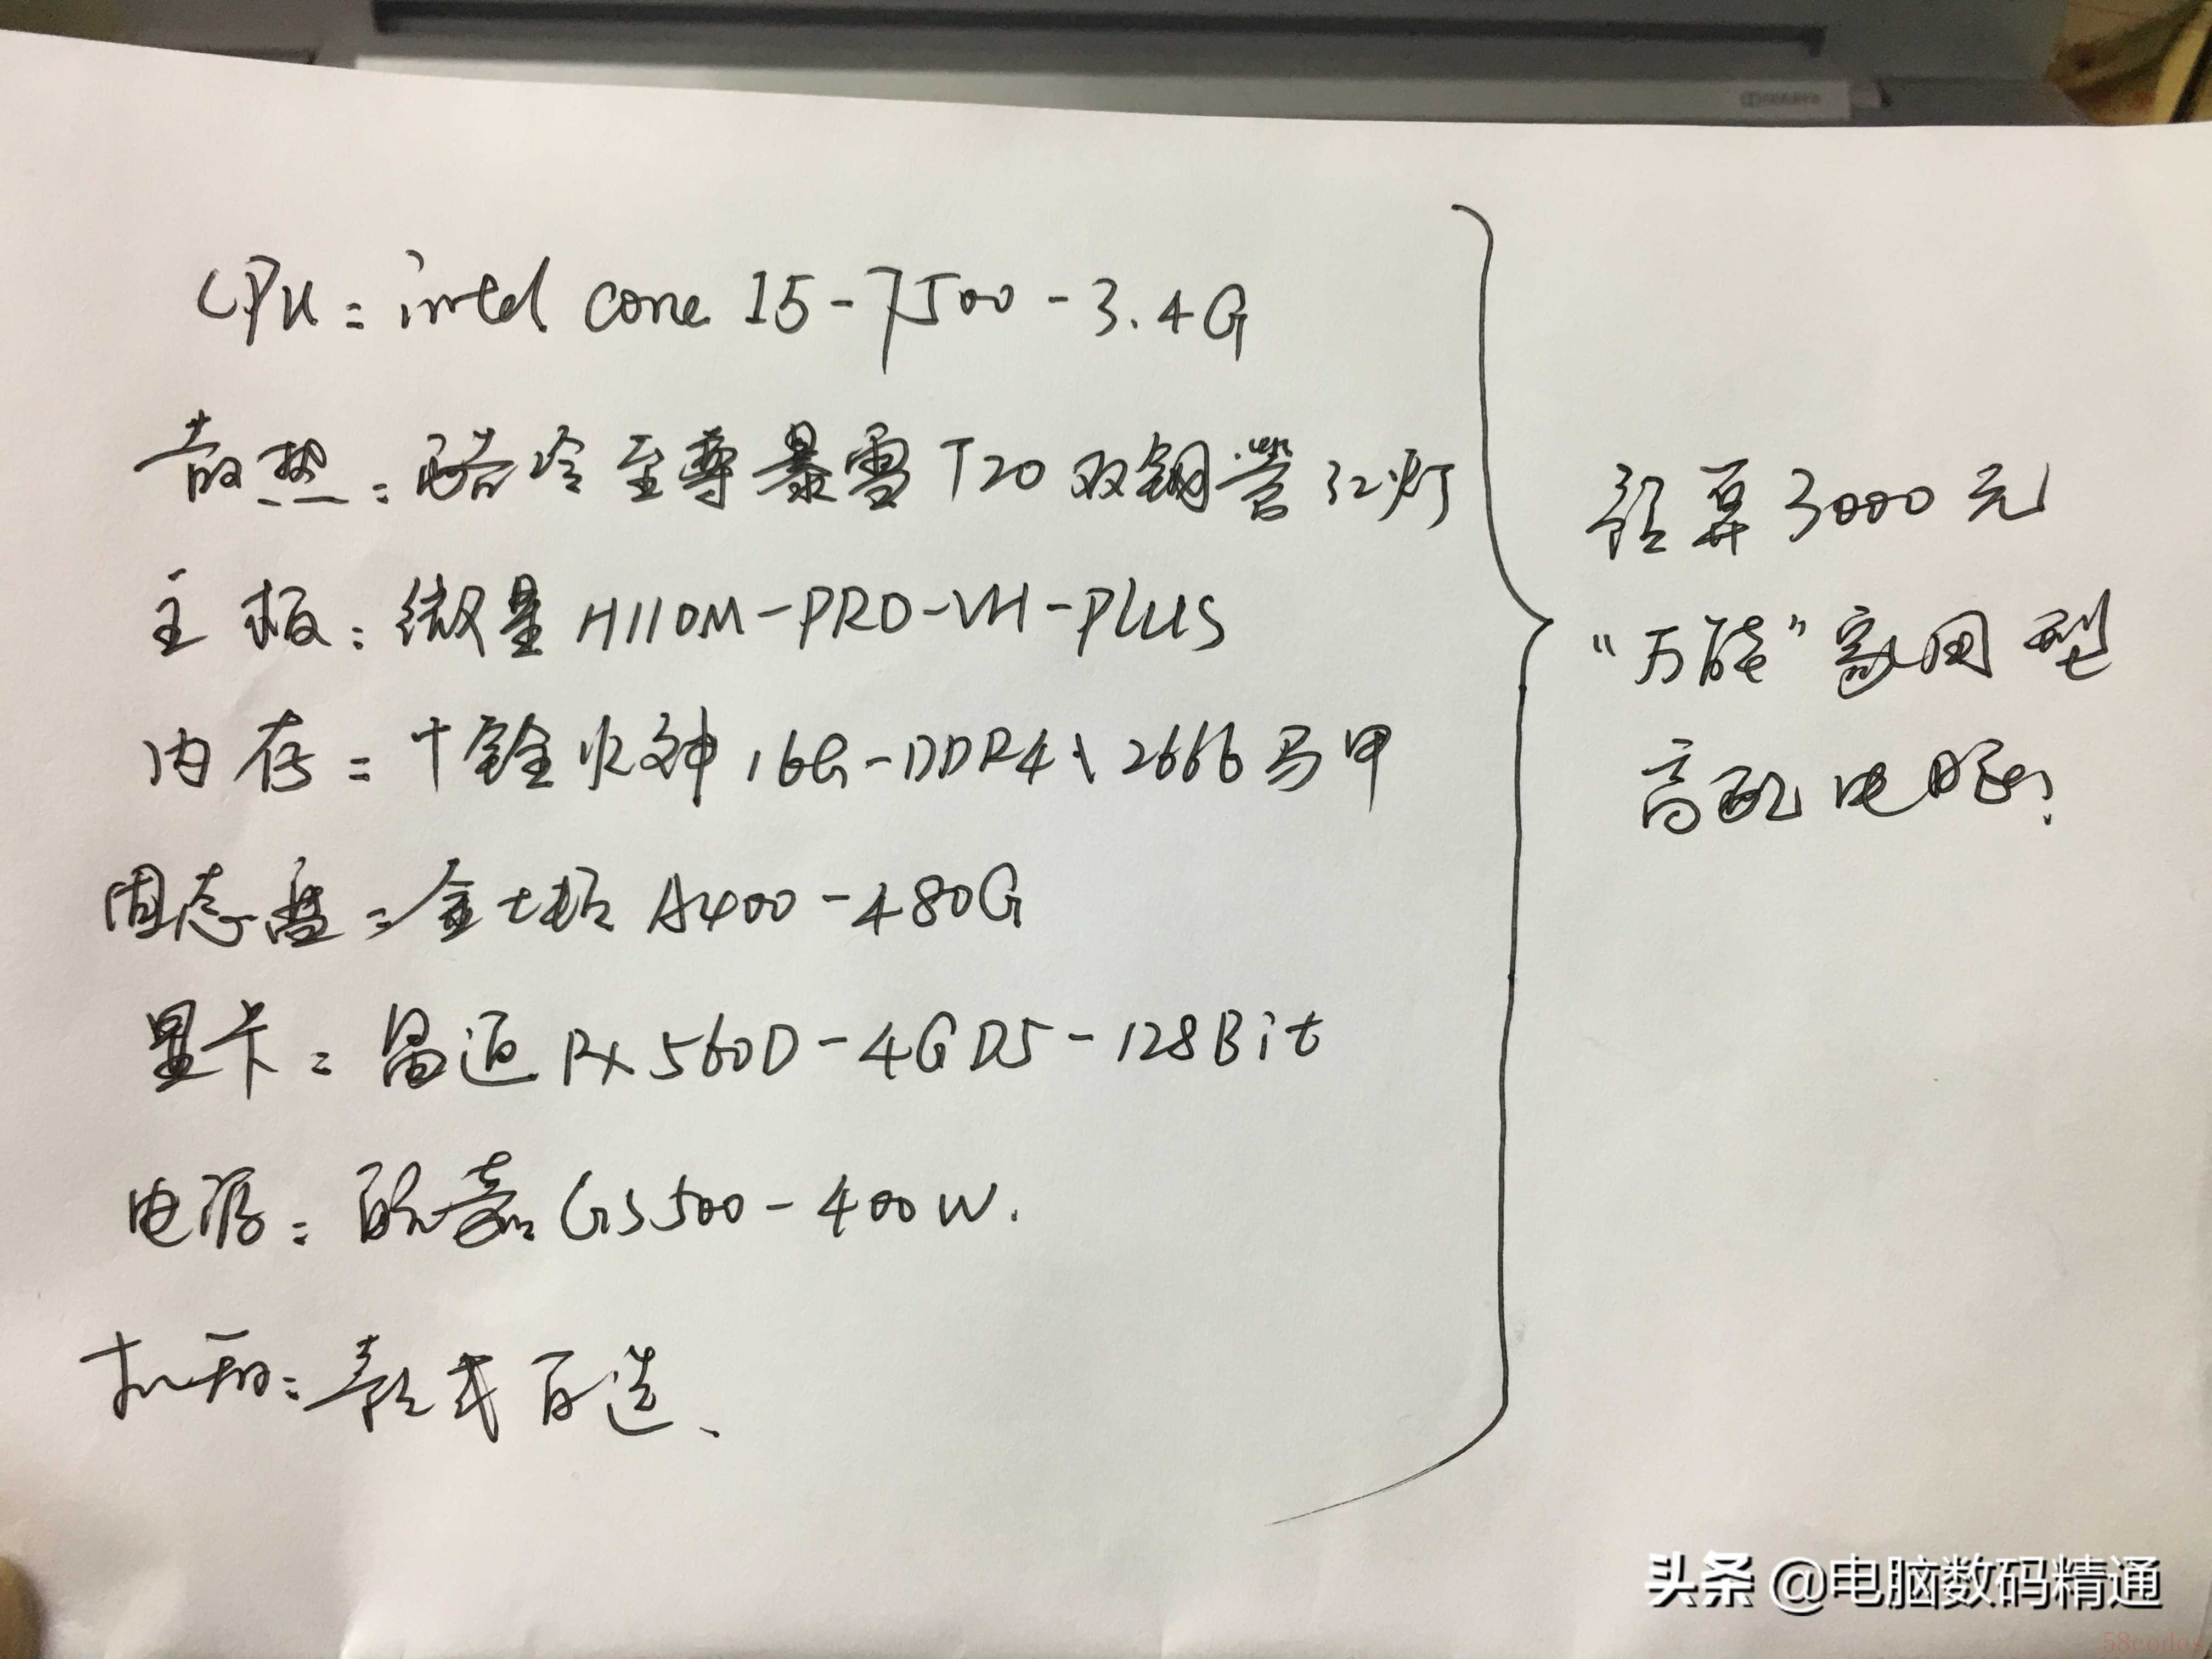 CPU: intel core I5-7500-3.4G
散热: 酷冷至尊暴雪T20双铜管红灯
主板: 微星H110M-PRO-VH-PLUS
内存: 十铨火神16G-DDR4、2666马甲
固态盘: 金士顿A400-480G
显卡: 迪RX560D-4GD5-128Bit
电源: 航嘉GS500-400W.
机箱: 款式自选、
预算3000元
“万能”家用型
高配电脑!
头条 @电脑数码精通
58codes